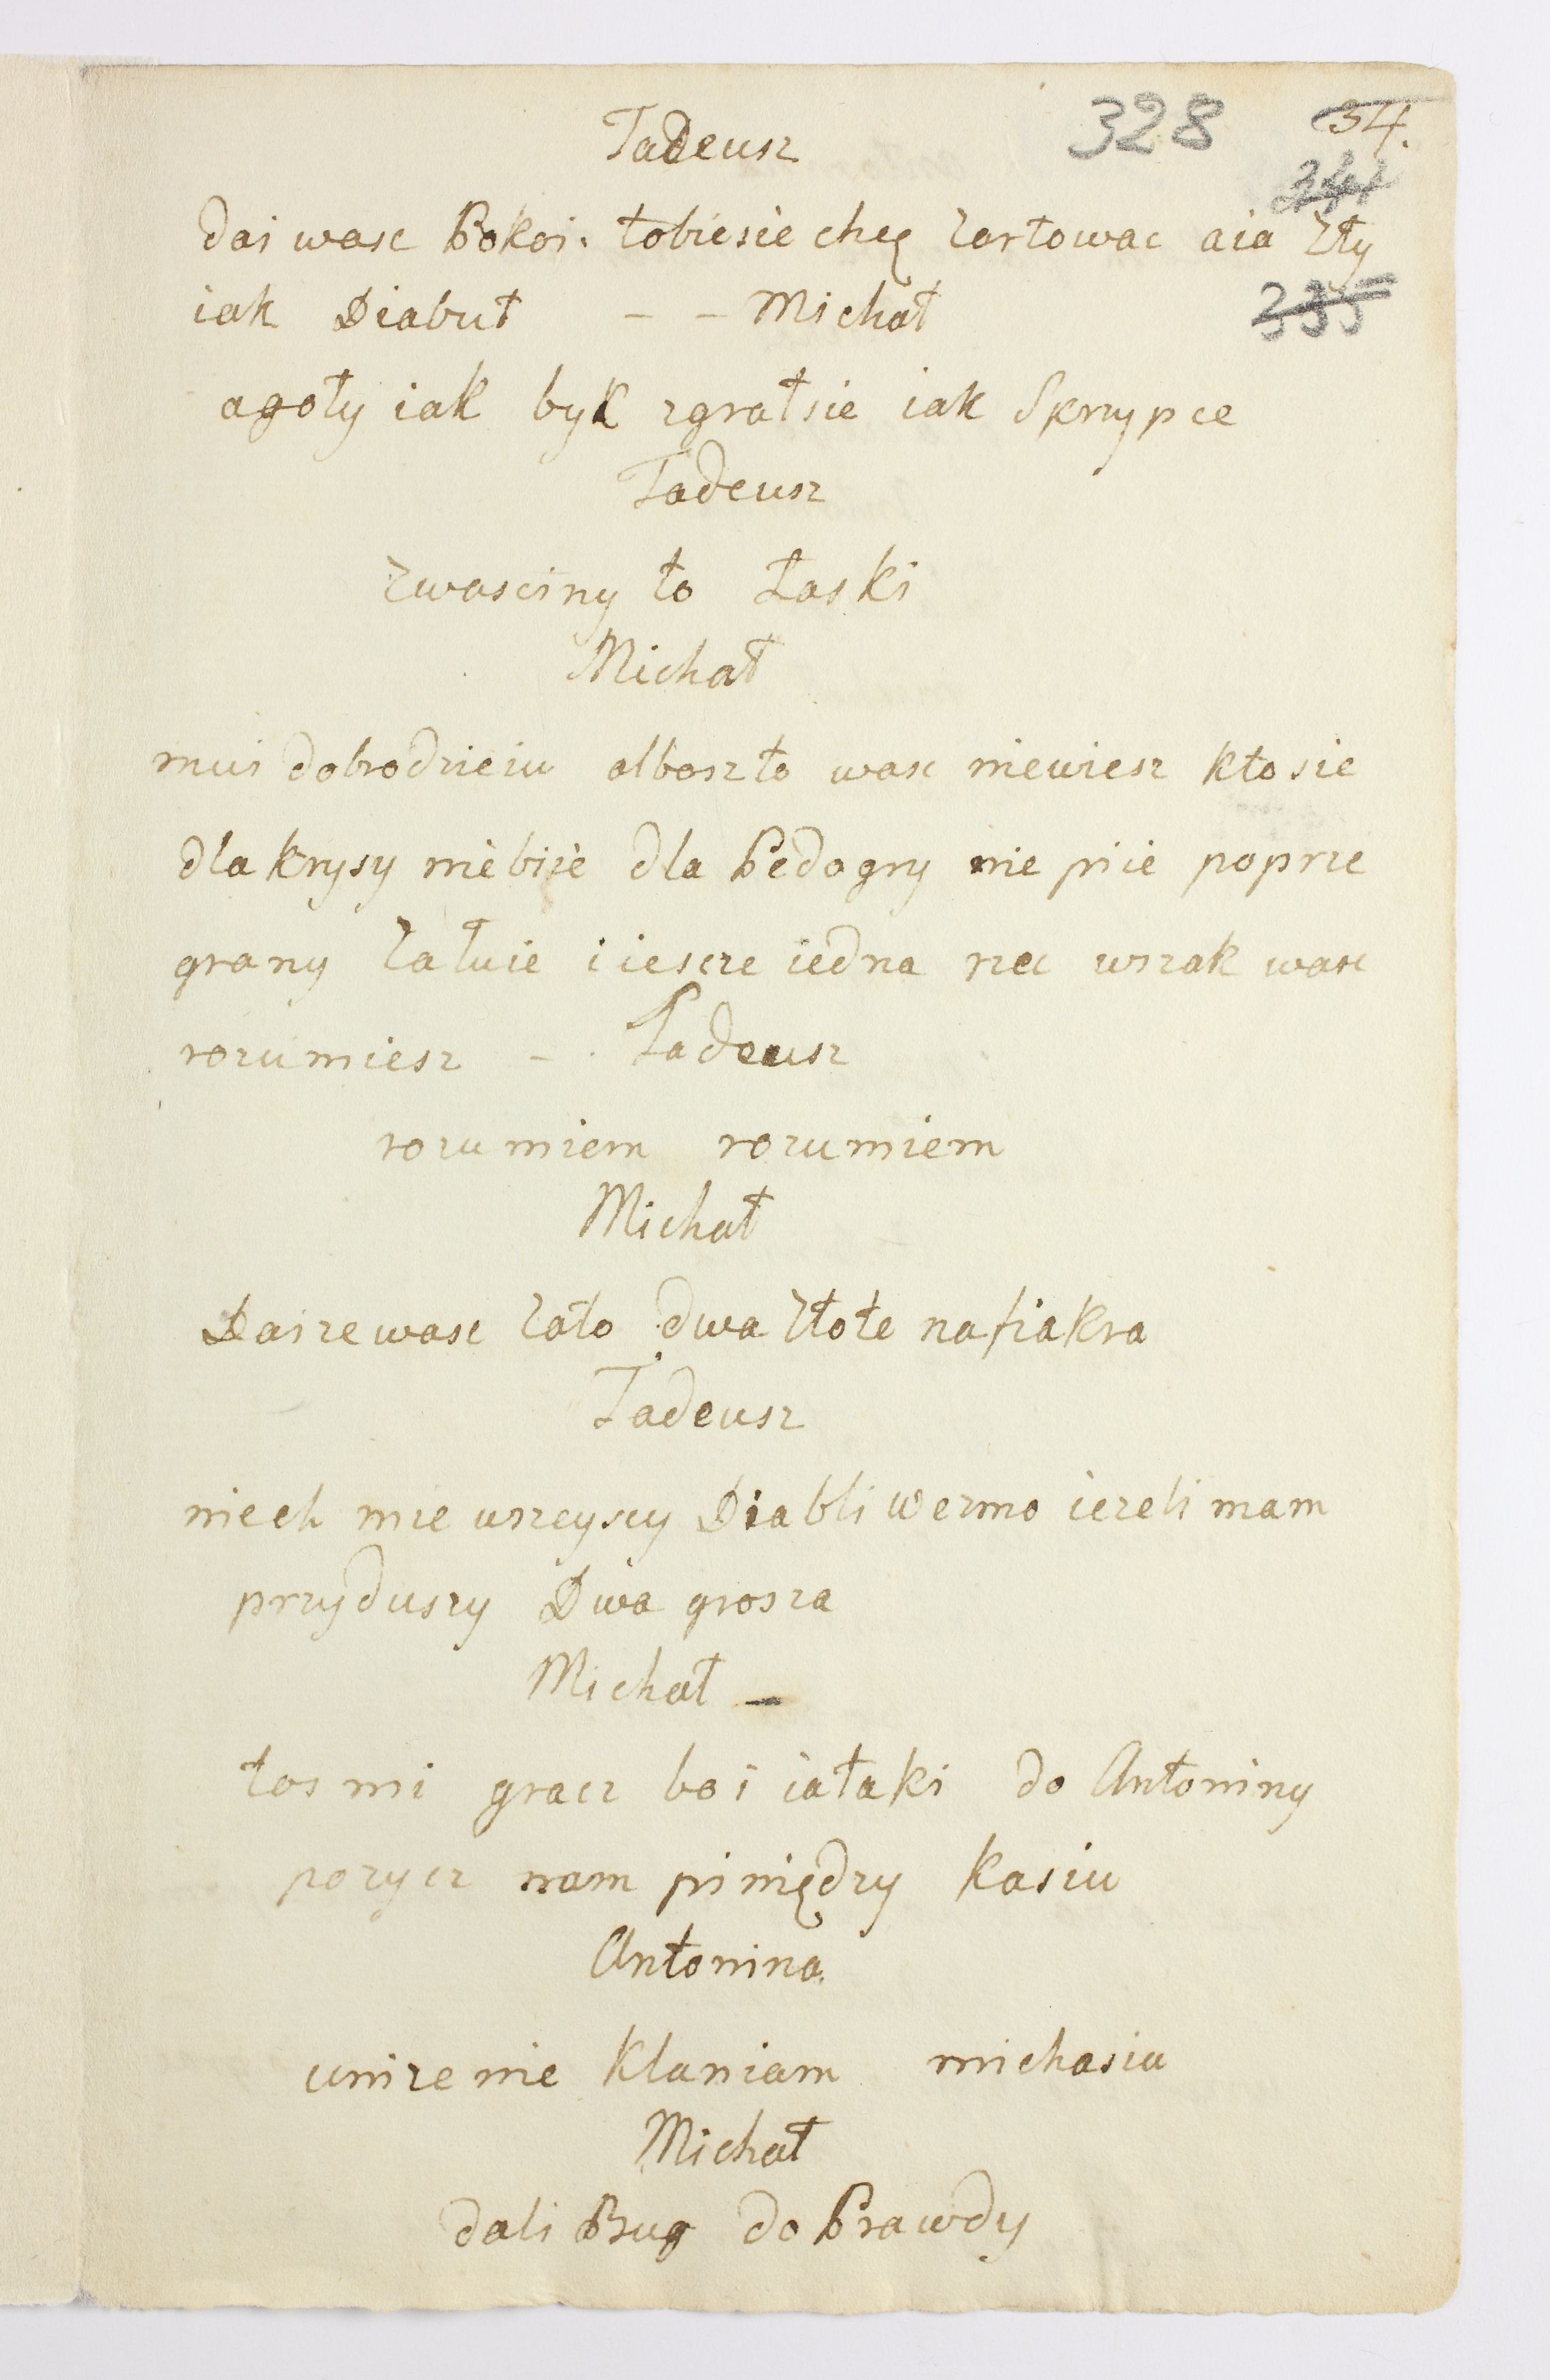 328 34.
Tadeusz
341
dai wasc Pokoi. tobiesie chcę zartowac aia zły
iak Diabuł - - Michał
335
agoły iak byk zgrałsie iak Skrzypce
Tadeusz
zwasciny to Łaski
Michał
mui dobrodzieiu alboszto wasc niewiesz ktosie
dla krysy niebiie dla Pedogry nie piie poprze
grany załuie i iescze iedna rzec wszak wasc
rozumiesz - . Tadeusz
rozumiem rozumiem
Michał
Daizewasc zato dwa złote nafiakra
Tadeusz
niech mie wszcyscy Diabli wezmo iezeli mam
przyduszy Dwa grosza
Michał -
tos mi gracz bo i iataki do Antoniny
pozycz nam piniędzy Kasiu
Antonina
unizenie Klaniam michasiu
Michał
dali Bug do Prawdy